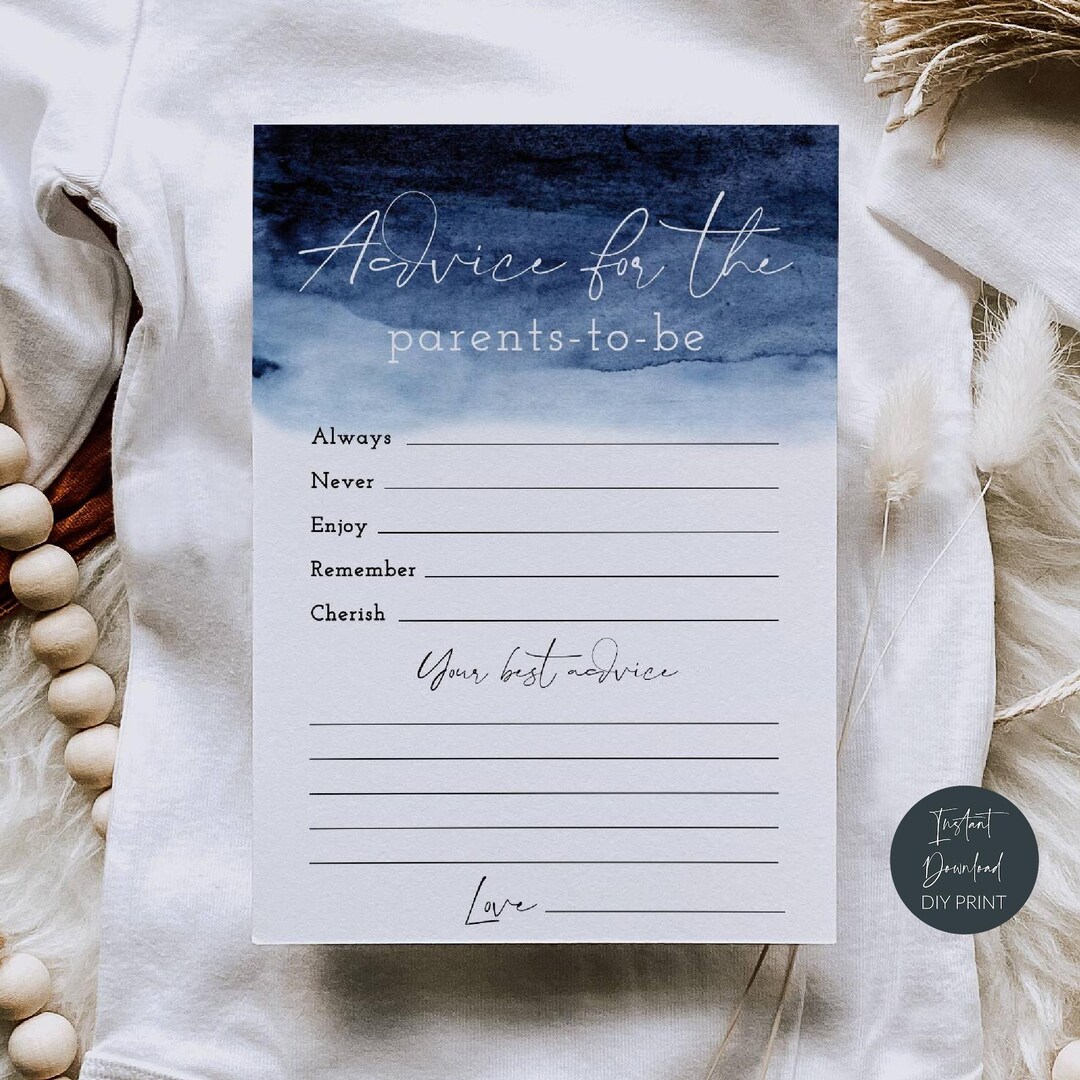 Advice for the
parents-to-be
Always
Never
Enjoy
Remember
Cherish
Your best advice
Love
Instant
Download
DIY PRINT